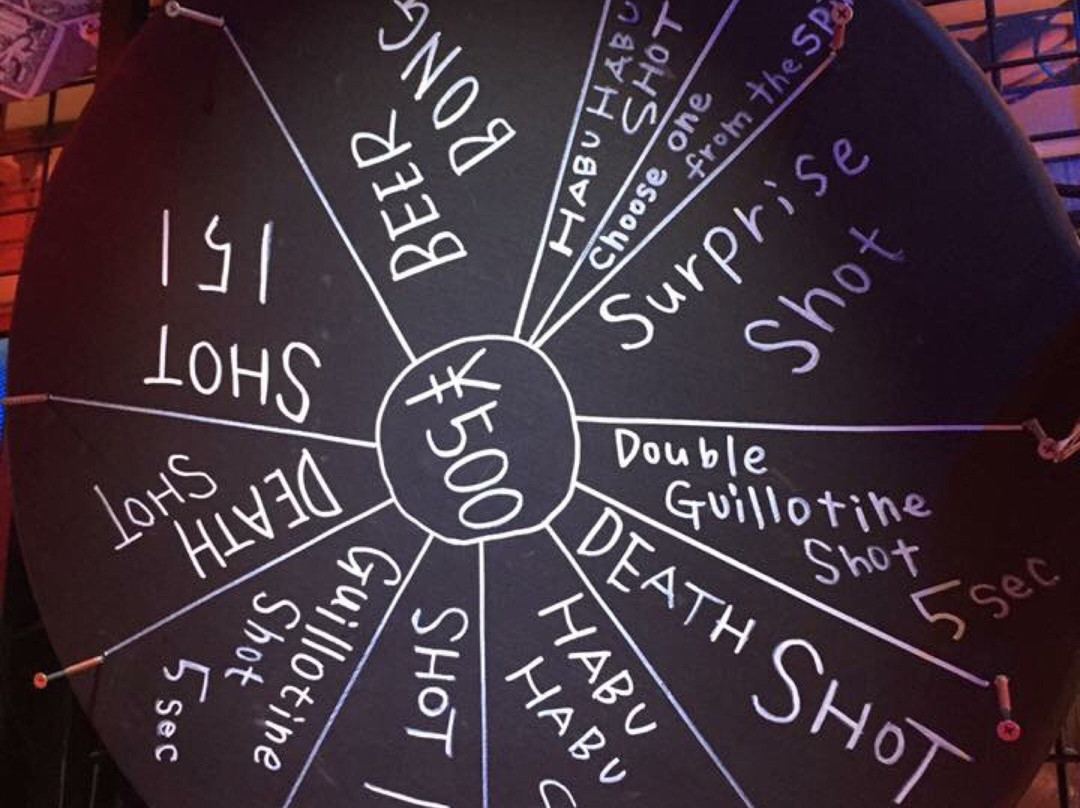 ¥500
BEER
BONG
HABU HABU
SHOT
choose one
from the
Surprise
Shot
Double
Guillotine
Shot
5 sec
DEATH SHOT
HABU
HABU
SHOT
Guillotine
Shot
5 sec
DEATH
SHOT
151
SHOT